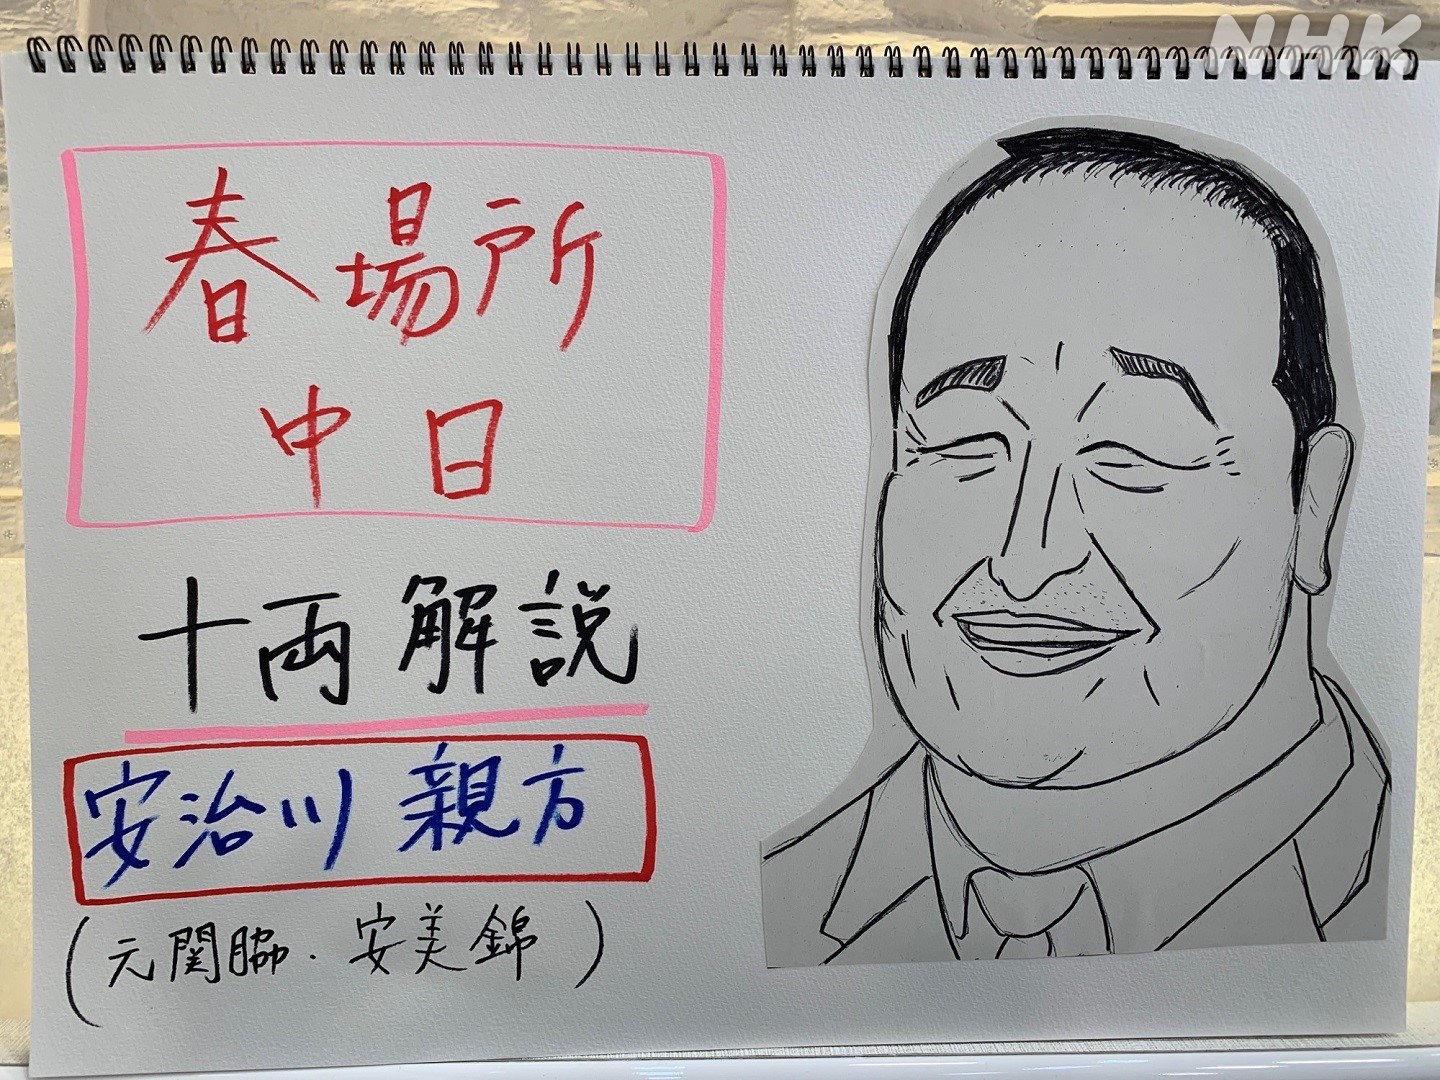 NHK
春場所
中日
十両解説
安治川親方
(元関脇・安美錦)